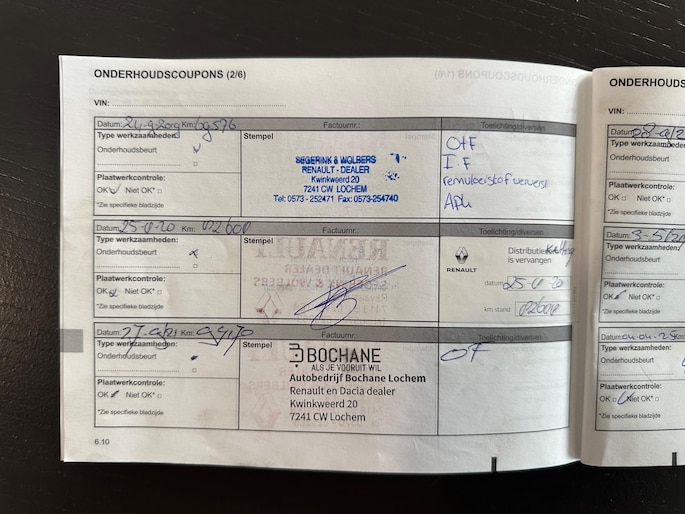 ONDERHOUDSCOUPONS (2/6)
VIN:
Datum: Km: Factuurnr.: Toelichting/diversen
Type werkzaamheden: Stempel
Onderhoudsbeurt
SEGERINK & WOLBERS
RENAULT - DEALER
Kwinkweerd 20
7241 CW LOCHEM
Tel: 0573 - 252471 Fax: 0573-254740
O+F
I.F
remvloeistof ververst
Plaatwerkcontrole:
OK Niet OK*
*Zie specifieke bladzijde
Datum: 25- -20 Km: Factuurnr.: Toelichting/diversen
Type werkzaamheden: Stempel
Onderhoudsbeurt
RENAULT
Distributie
is vervangen
datum 25- -20
km stand
Plaatwerkcontrole:
OK Niet OK*
*Zie specifieke bladzijde
Datum: Km: Factuurnr.: Toelichting/diversen
Type werkzaamheden: Stempel
Onderhoudsbeurt
BOCHANE
ALS JE VOORUIT WIL
Autobedrijf Bochane Lochem
Renault en Dacia dealer
Kwinkweerd 20
7241 CW Lochem
OF
Plaatwerkcontrole:
OK Niet OK*
*Zie specifieke bladzijde
6.10
ONDERHOUDS
VIN:
Datum:
Type werkzaamheden:
Onderhoudsbeurt
Plaatwerkcontrole:
OK Niet OK*
*Zie specifieke bladzijde
Datum: 3-5/
Type werkzaamheden:
Onderhoudsbeurt
Plaatwerkcontrole:
OK Niet OK*
*Zie specifieke bladzijde
Datum: 04-04-25 Km
Type werkzaamheden:
Onderhoudsbeurt
Plaatwerkcontrole:
OK Niet OK*
*Zie specifieke bladzijde